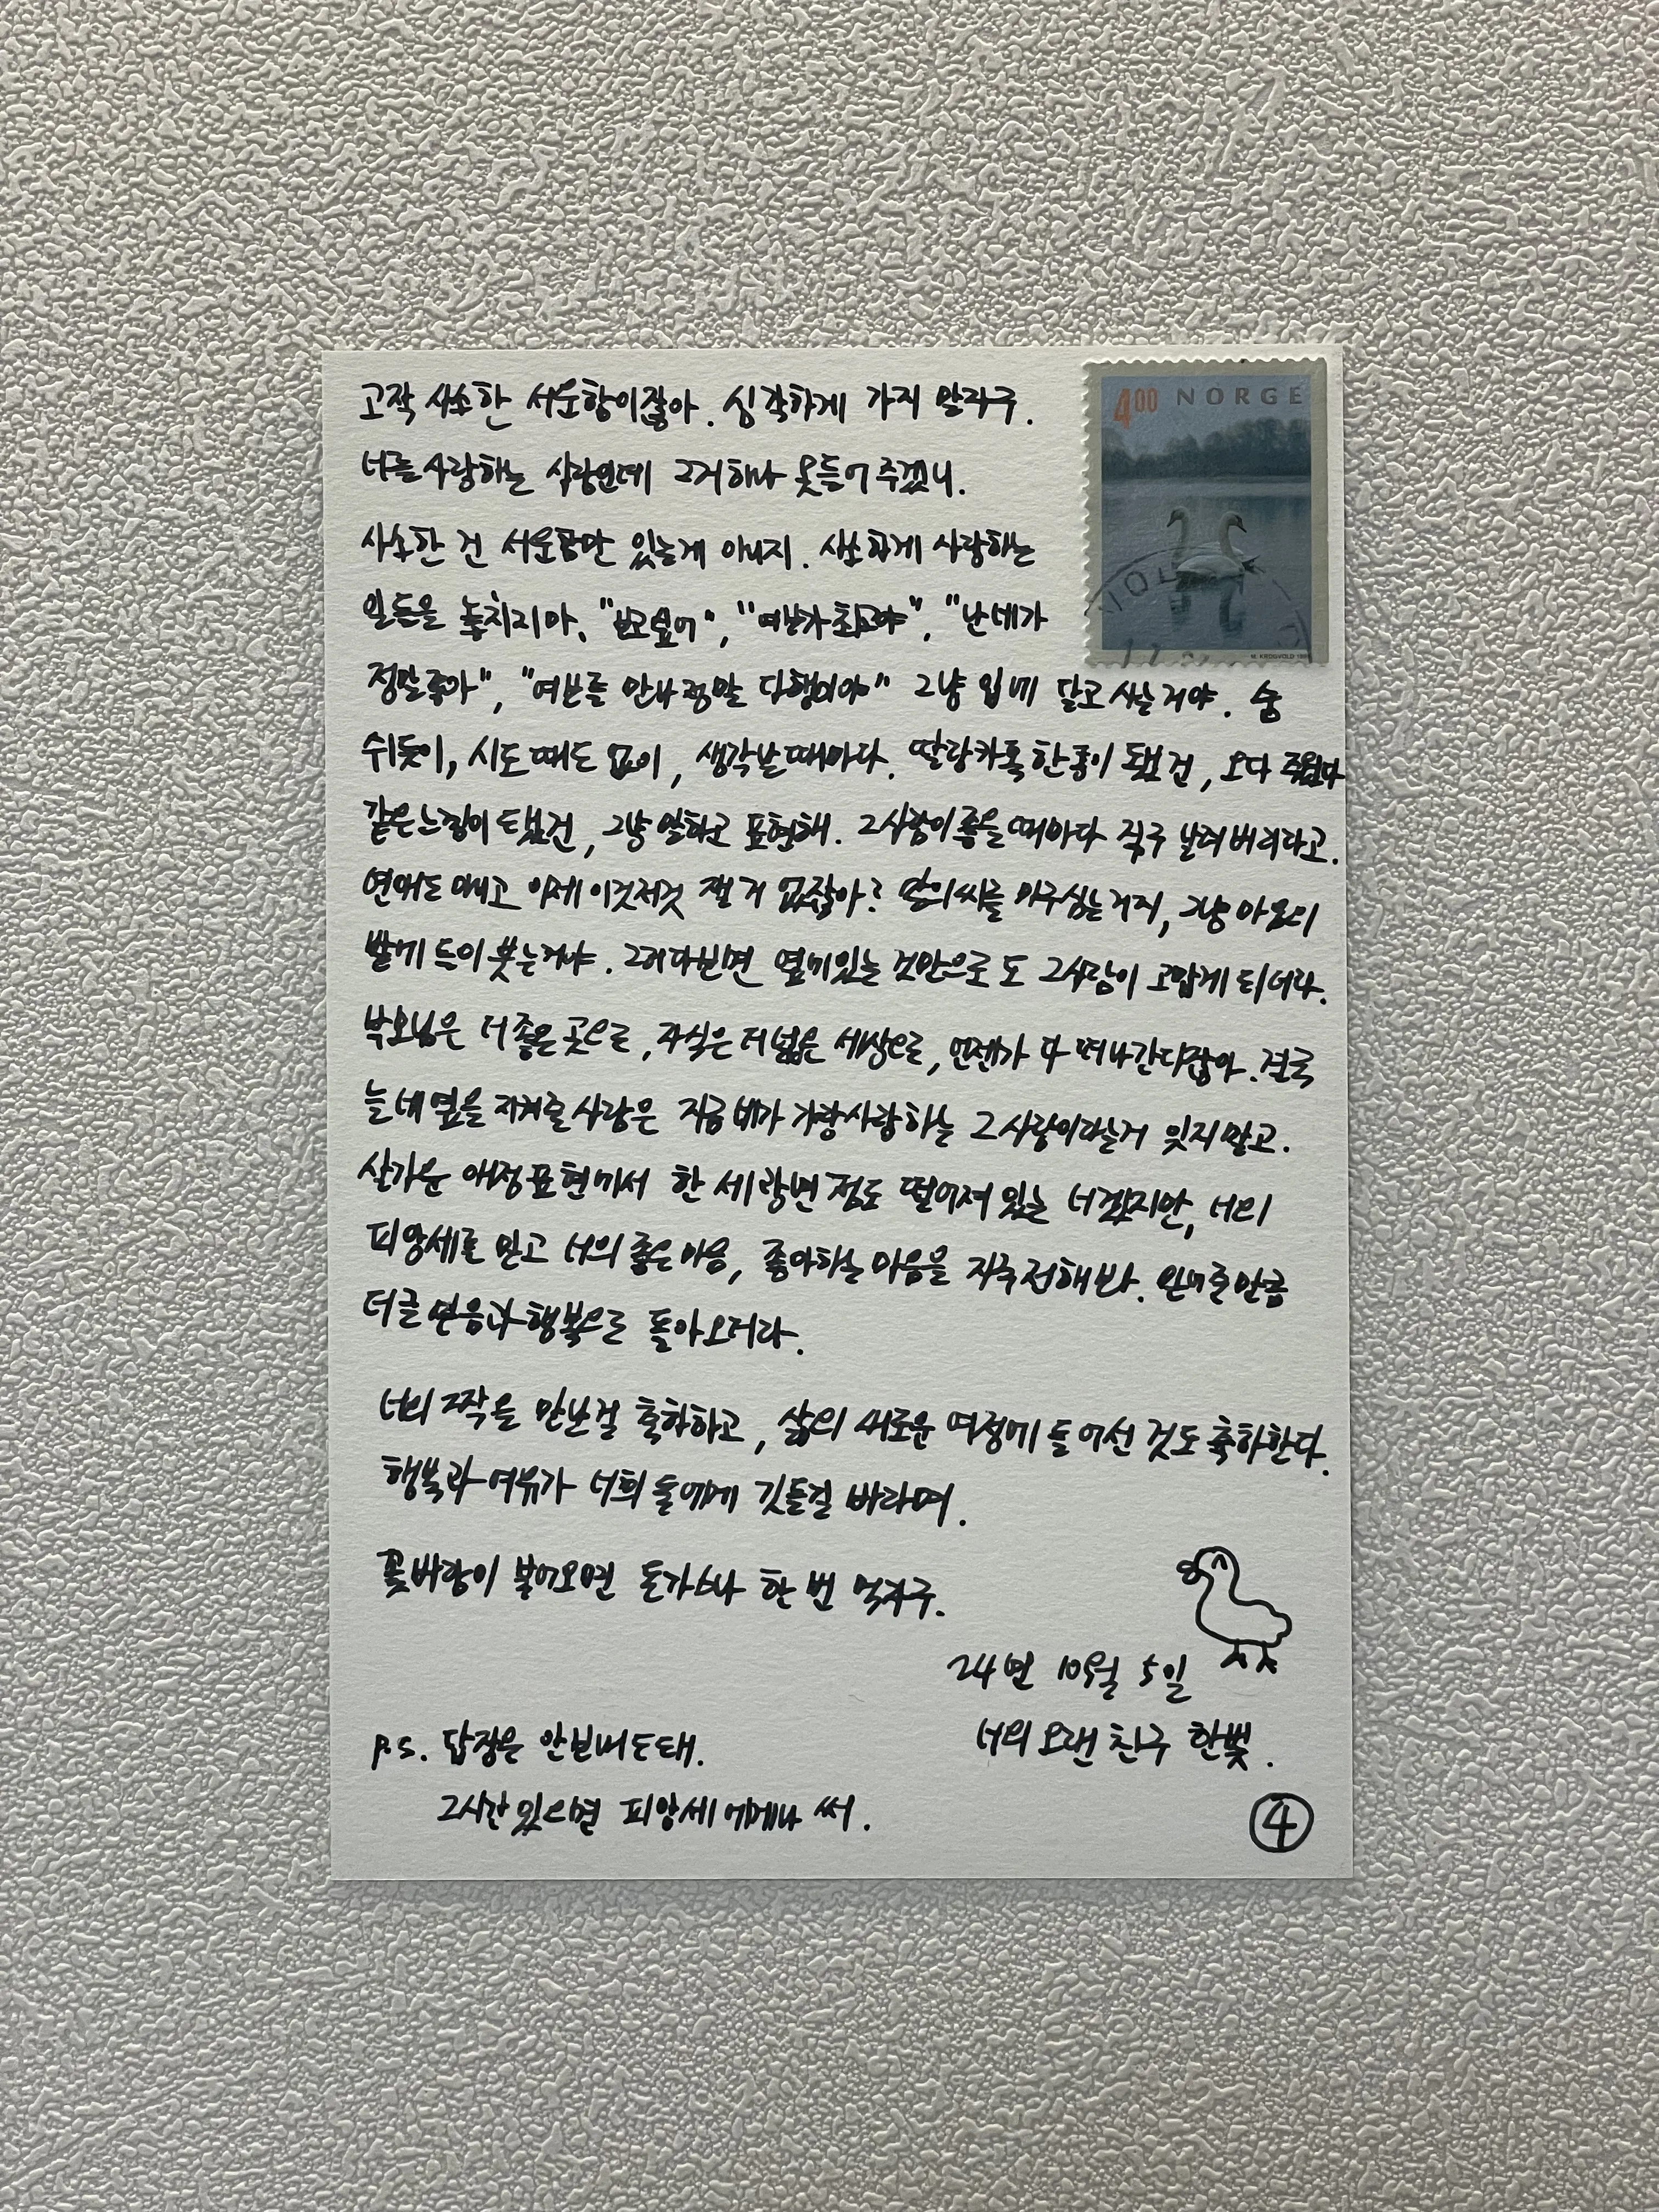 고작 사소한 서운함이잖아. 심각하게 가지 말자구.
4⁰⁰ NORGE
너를 사랑하는 사람인데 그거 하나 못들어주겠니.
사소한 건 서운함만 있는게 아니지. 사소하게 사랑하는
일들을 놓치지마. "보고싶어", "여보가 최고야", "난 네가
M. KROGVOLD
정말좋아", "여보를 만나 정말 다행이야" 그냥 입에 달고 사는거야. 숨
쉬듯이, 시도때도 없이, 생각날때마다. 딸랑카톡한통이 됐건, 오다 주웠다
같은느낌이 됐건, 그냥 말하고 표현해. 그사람이 좋을때마다 직구 날려버리라고.
연애도 아니고 이제 이것저것 잴 거 없잖아? 말의씨를 마구심는거지, 그냥 마음의
밭에 들이붓는거야. 그러다보면 옆에있는 것만으로도 그사람이 고맙게 되더라.
부모님은 더 좋은 곳으로, 자식은 더 넓은 세상으로, 언젠가 다 떠나간다잖아. 결국
늘 네 옆을 지켜줄 사람은 지금 네가 가장사랑하는 그 사람이라는거 잊지말고.
살가운 애정표현에서 한 세 광년 정도 떨어져 있는 너겠지만, 너의
피앙세를 믿고 너의 좋은마음, 좋아하는 마음을 자주 전해봐. 안겨준만큼
더 큰 믿음과 행복으로 돌아오더라.
너의 짝을 만난걸 축하하고, 삶의 새로운 여정에 들어선 것도 축하한다.
행복과 여유가 너희 둘에게 깃들길 바라며.
꽃바람이 불어오면 돈가스나 한 번 먹자구.
24년 10월 5일
너의 오랜 친구 한빛.
P.S. 답장은 안보내도돼.
그시간있으면 피앙세에게나 써.
④